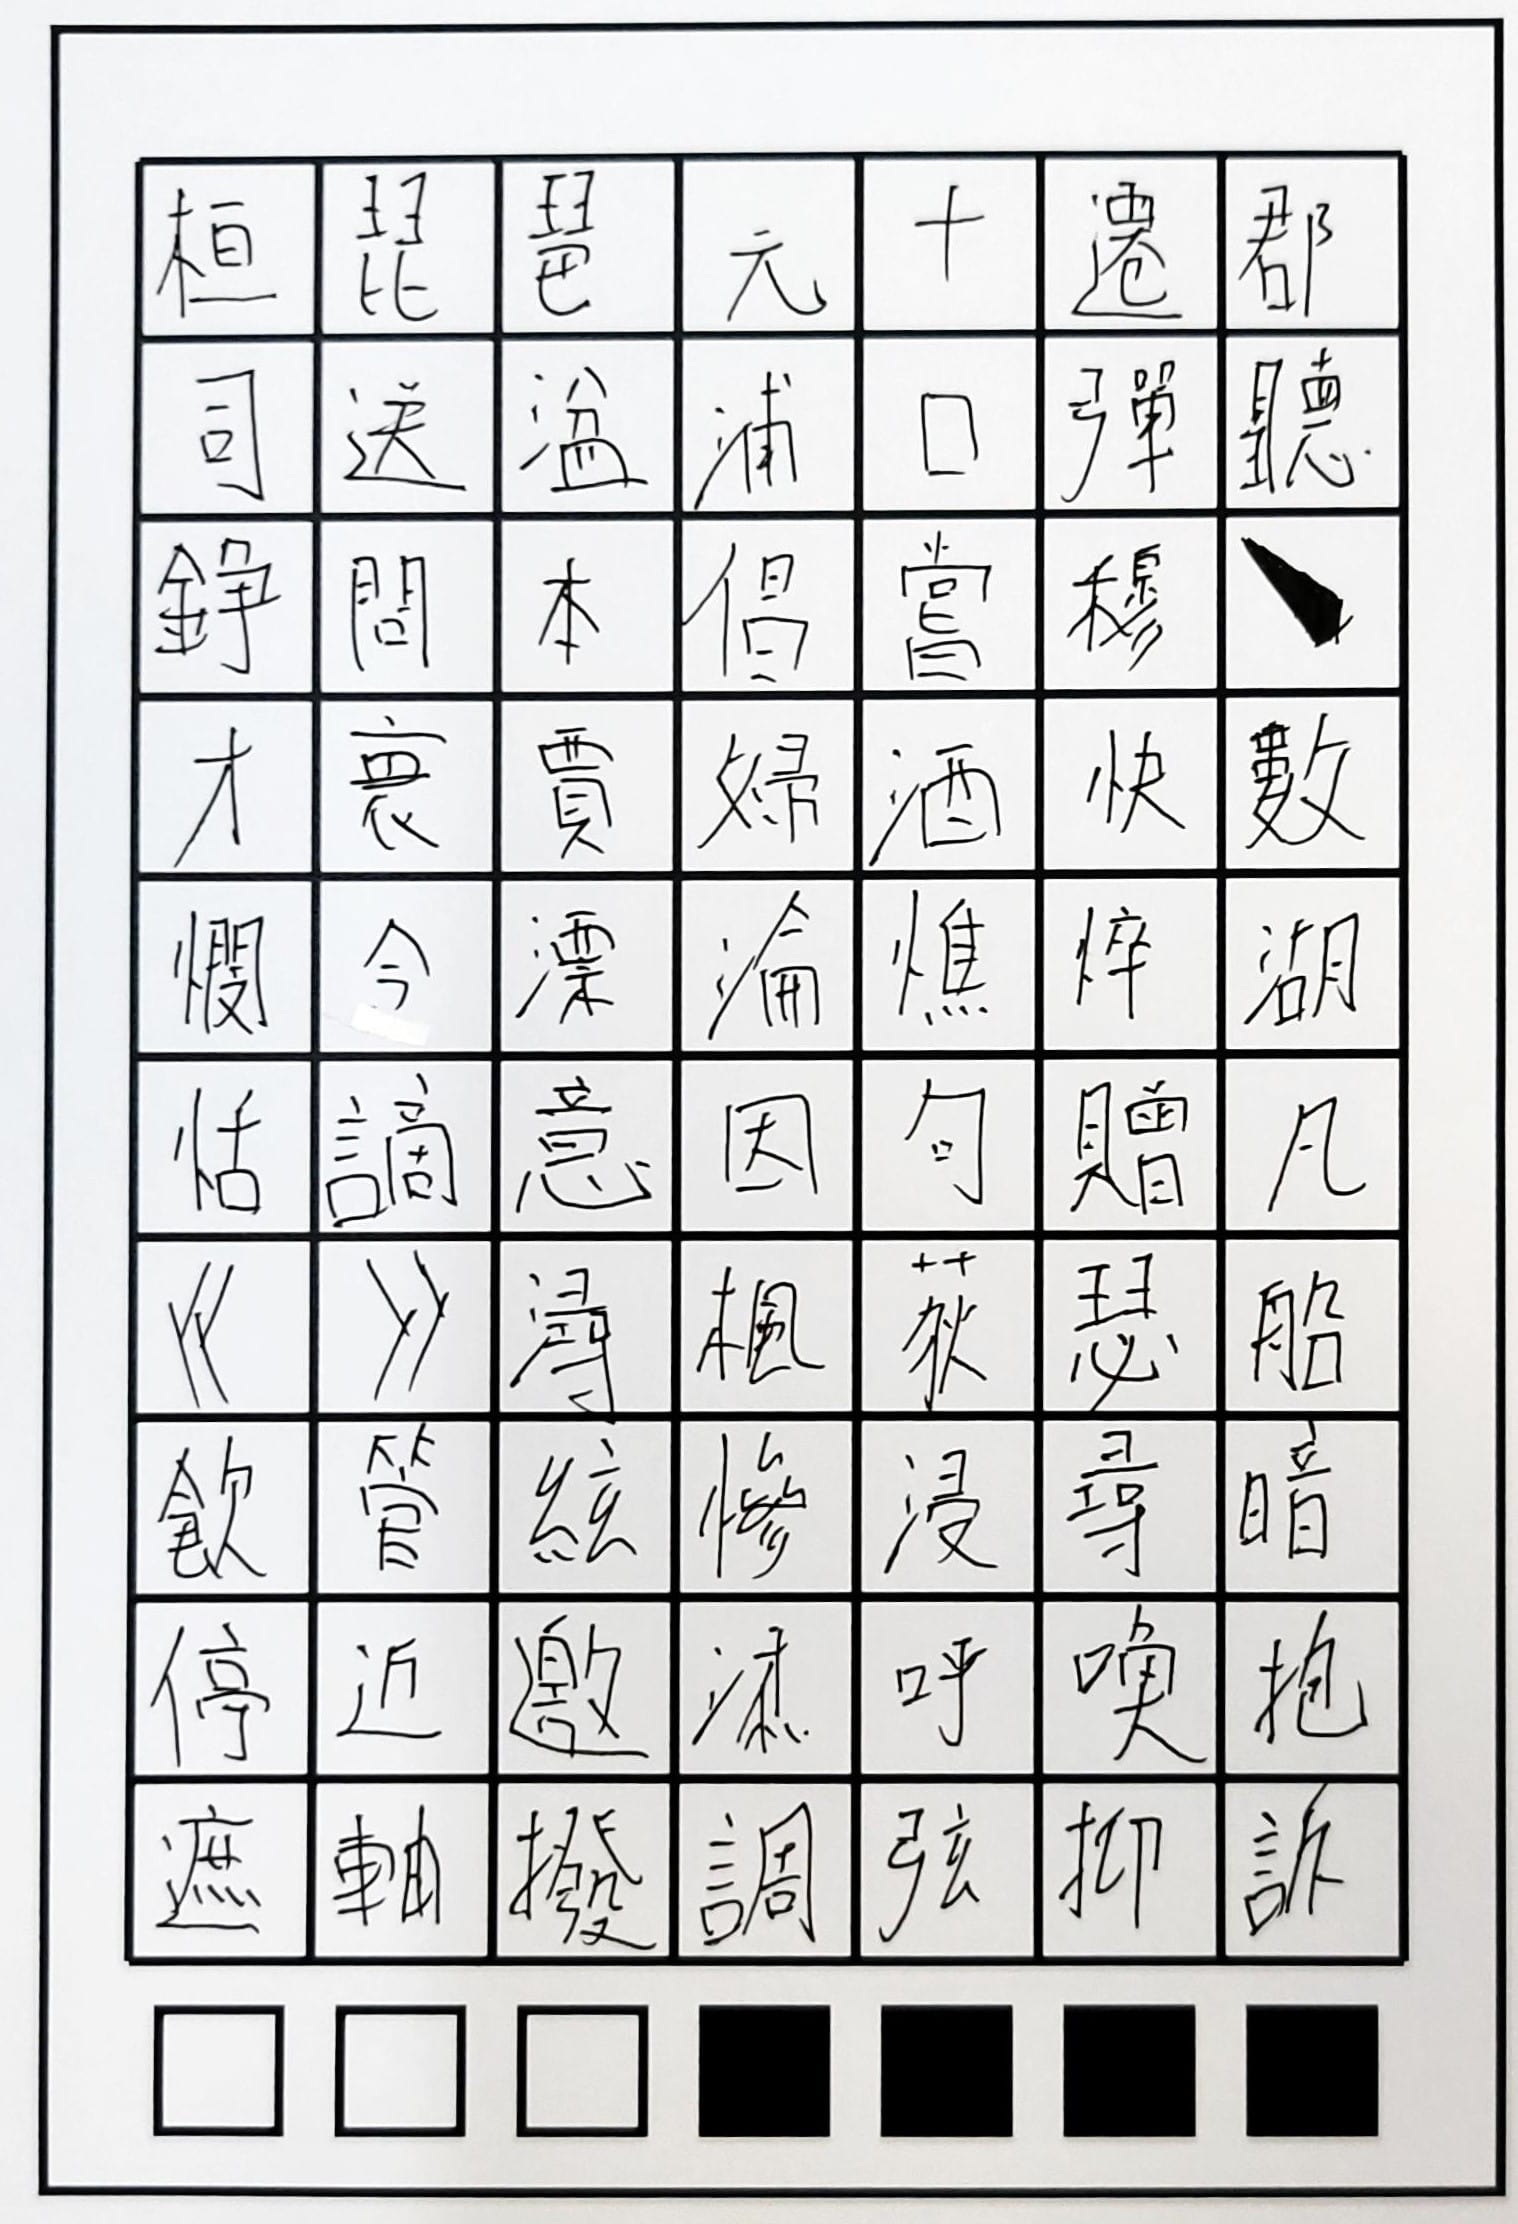 桓琵琶元十遷郡
司送湓浦口彈聽
錚問本倡嘗穆、
才裏賈婦酒快數
憫今漂淪憔悴湖
恬謫意因句贈凡
《》潯楓荻瑟船
飲管絃慘浸尋暗
停近邀添呼喚抱
遮軸撥調弦抑訴